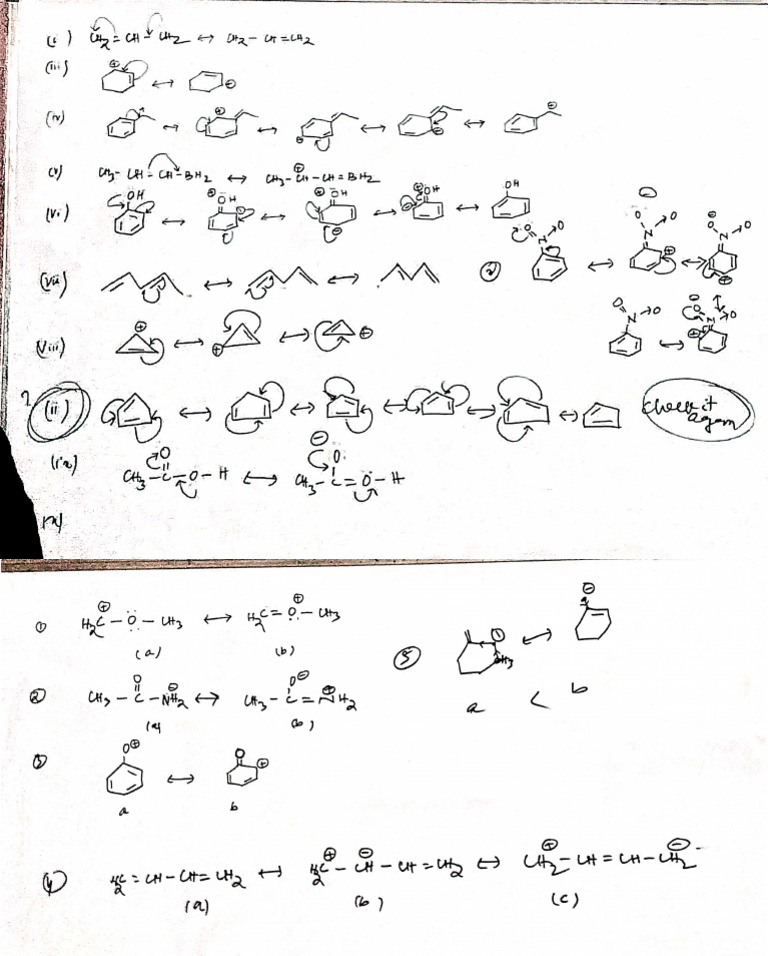 (i) CH₂ = CH - CH₂ ↔ CH₂ - CH = CH₂
(iii) ⊕ ↔ ⊖
(iv) ↔ ⊕ ↔ ⊖ ↔ ⊖ ↔ ⊖
(v) CH₃ - CH = CH - BH₂ ↔ CH₃ - CH⊕ - CH = BH₂
(vi) OH ↔ ⊕ OH ↔ ⊕ OH ⊖ ↔ ⊕ OH ↔ OH
(vii) ↔ ↔
(viii) ⊕ ↔ ⊕ ↔ ⊕
? (ii) ↔ ↔ ↔ ↔ ↔ check it again
(ix) CH₃ - C - O - H ↔ CH₃ - C = O - H
O ⊖ O
① H₂C⊕ - O - CH₃ ↔ H₂C = O⊕ - CH₃
(a) (b)
② CH₃ - C - NH₂ ↔ CH₃ - C = NH₂
O O⊖
(a) (b)
③ O⊕ ↔ O ⊕
a b
④ H₂C = CH - CH = CH₂ ↔ H₂C⊕ - CH⊖ - CH = CH₂ ↔ CH₂⊕ - CH = CH - CH₂⊖
(a) (b) (c)
⑤ ↔ ⊖
a < b